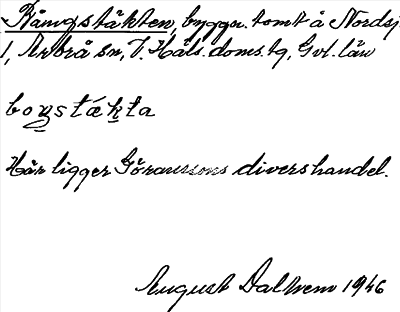 Bångstäkten, byggn. tomt å Nordsj
1, Arbrå sn, V. Häls. doms. tg, Gvl. län
boŋstákta
Här ligger Göranssons divershandel.
August Dalhem 1946